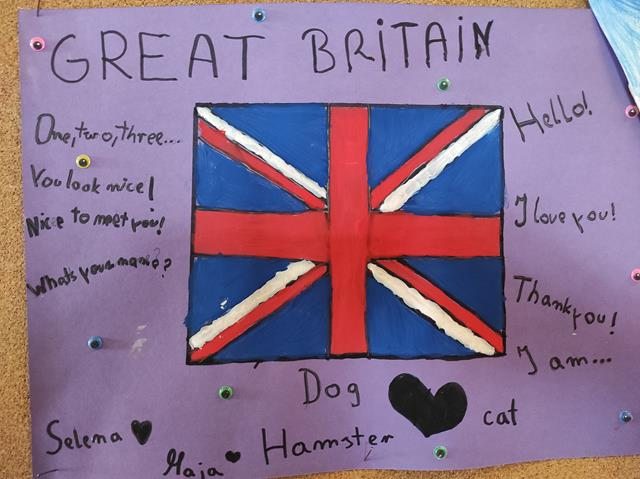 GREAT BRITAIN
One, two, three...
You look nice!
Nice to meet you!
What's your name?
Hello!
I love you!
Thank you!
I am...
Dog
cat
Hamster
Selena
Maja